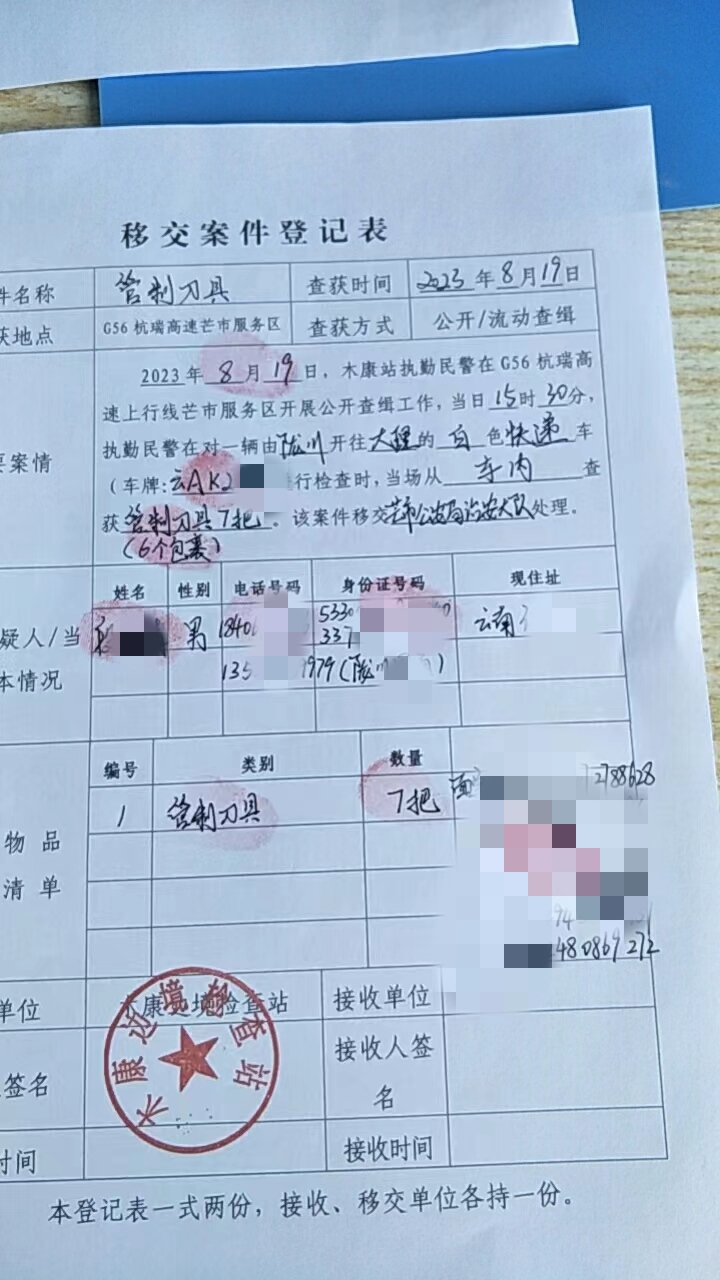 移交案件登记表
件名称 管制刀具 查获时间 2023年8月19日
获地点 G56杭瑞高速芒市服务区 查获方式 公开/流动查缉
要案情
2023年8月19日,木康站执勤民警在G56杭瑞高
速上行线芒市服务区开展公开查缉工作,当日15时30分,
执勤民警在对一辆由陇川开往大理的白色快递车
(车牌:云AK2 行检查时,当场从车内查
获管制刀具7把。该案件移交芒市公安局治安大队处理。
(6个包裹)
疑人/当
本情况
姓名 性别 电话号码 身份证号码 现住址
男 1840 5330 云南
337
135 1979(陇川 )
物品
清单
编号 类别 数量
1 管制刀具 7把
2788628
94
480869272
单位 木康边境检查站 接收单位
签名 接收人签
名
时间 接收时间
木康边境检查站
本登记表一式两份,接收、移交单位各持一份。